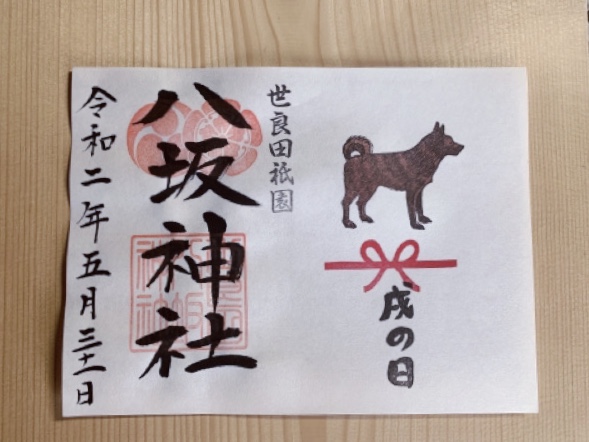 戌の日
世良田祇園
八坂神社
令和二年五月三十一日